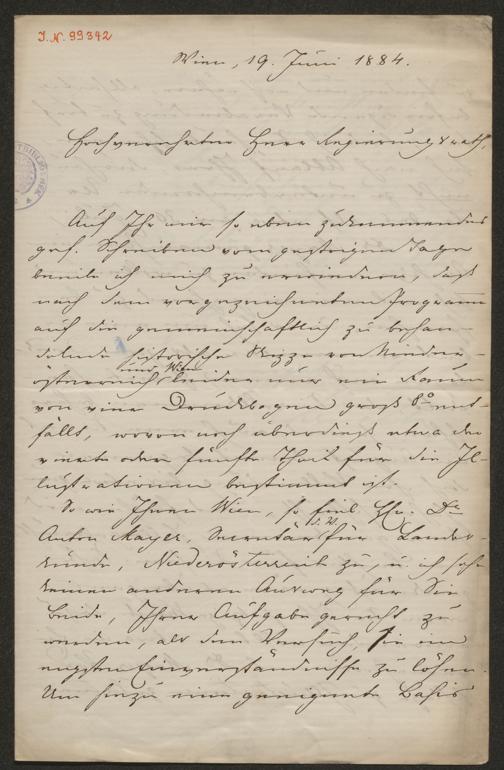 I. N. 99342
Wien, 19. Juni 1884.
Hochverehrter Herr Regierungsrath,
Auf Ihr mir so eben zukommendes
gef. Schreiben vom gestrigen Tage
beeile ich mich zu erwiedern, daß
nach dem vorgezeichneten Programm
auf die gemeinschaftlich zu behan-
delnde historische Skizze von Nieder-
und Wien
österreich leider nur ein Raum
von vier Druckbogen groß 8o ent-
fällt, wovon noch überdieß etwa der
vierte oder fünfte Theil für die Il-
lustrationen bestimmt ist.
So wie Ihnen Wien, so fiel H. Dr
Anton Mayer, Secretär für Landes-
kunde, Niederösterreich zu, u. ich sehe
keinen anderen Ausweg für Sie
Beide, Ihrer Aufgabe gerecht zu
werden, als den Versuch, sie im
engsten Einverständnisse zu lösen.
Um hiezu eine geeignete Basis